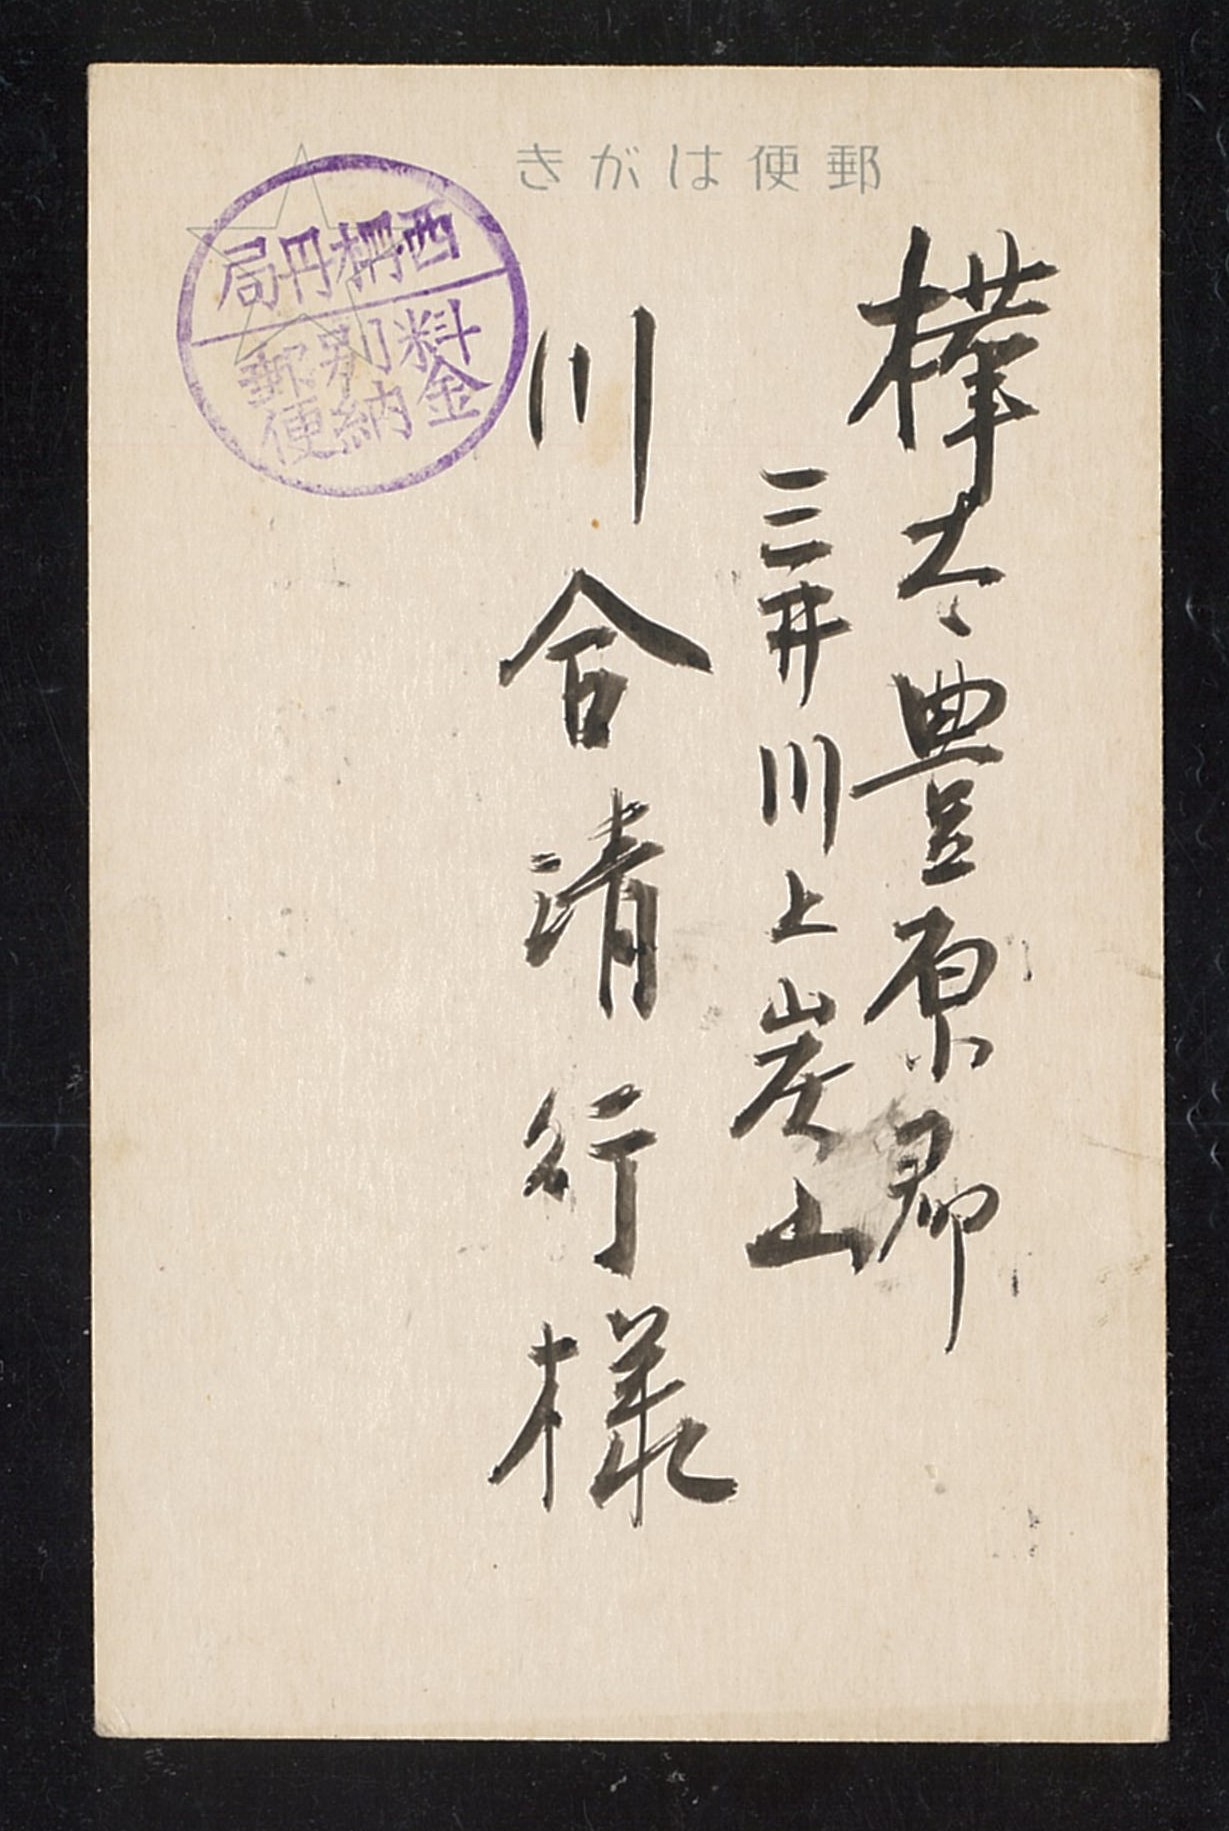 郵便はがき
樺太豊原郡
三井川上炭山
川合清行様
西柵丹局
料金
別納
郵便